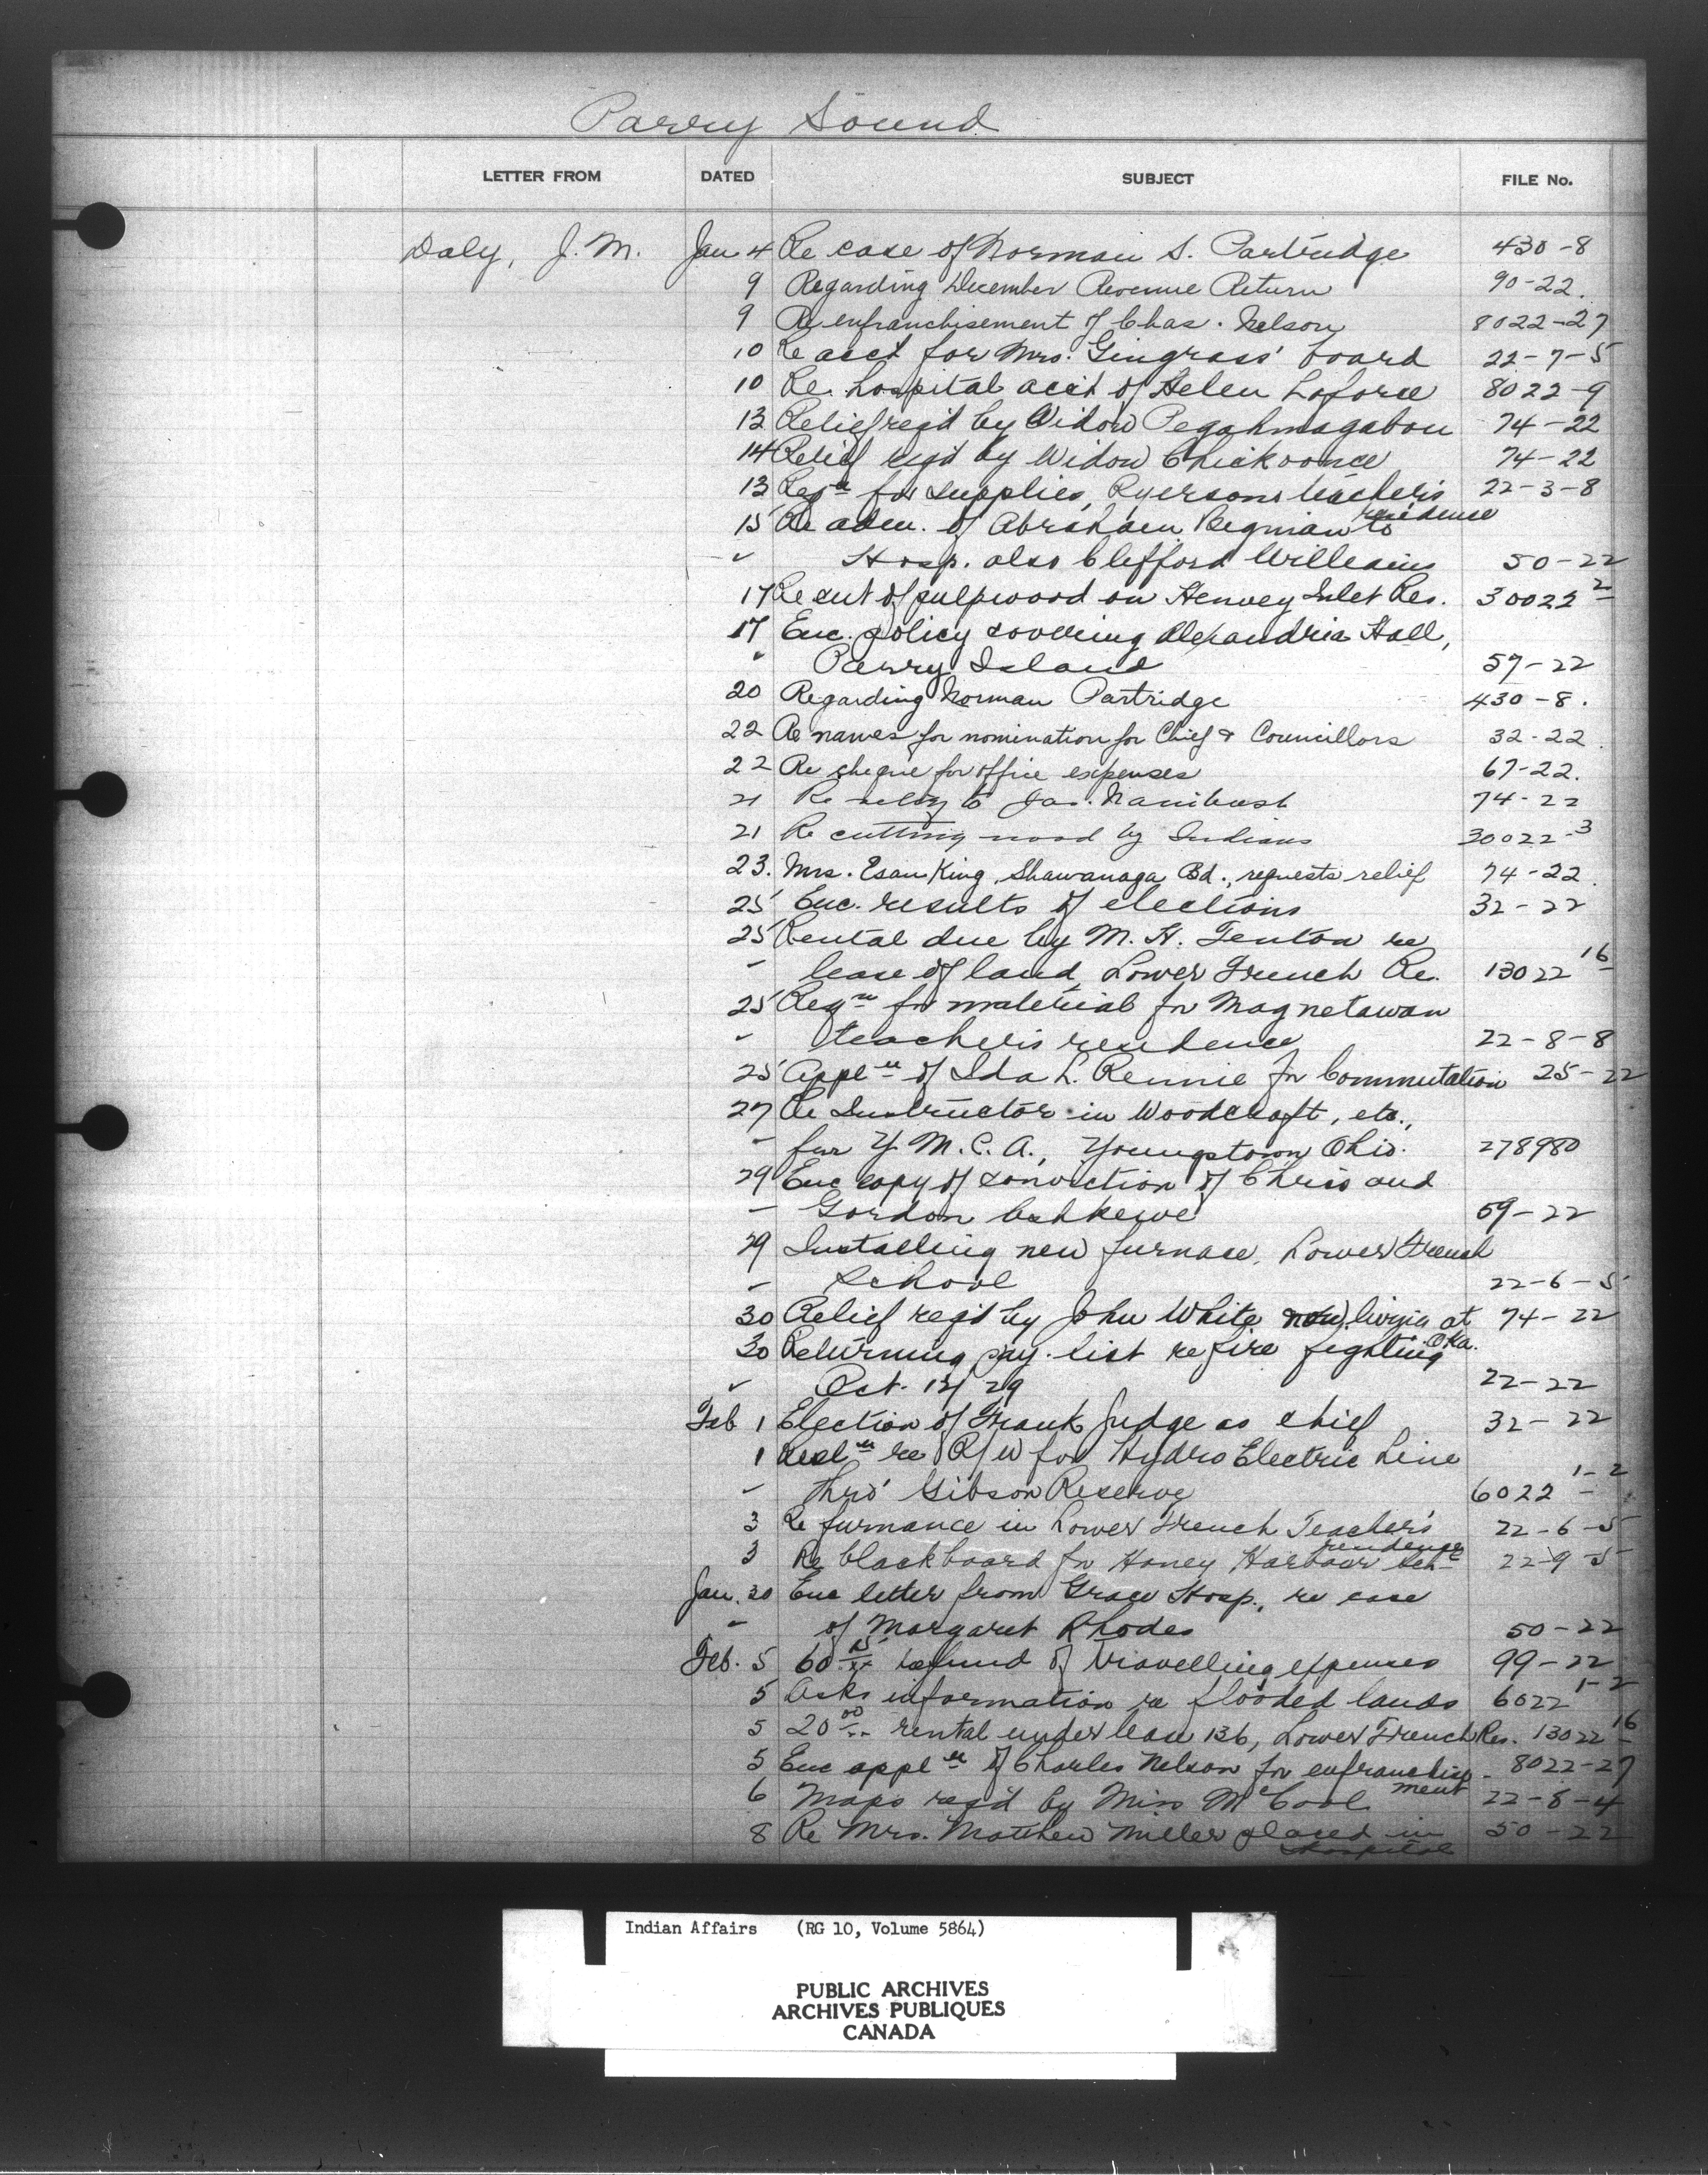 Parry Sound
LETTER FROM DATED SUBJECT FILE No.
Daly, J. M. Jan. 4 Re case of Norman S. Partridge 430-8
9 Regarding December Revenue Return 90-22.
9 Re enfranchisement of Chas. Nelson 8022-27
10 Re acct for Mrs. Gingrass' board 22-7-5
10 Re. hospital acct of Helen Laforce 8022-9
13 Relief reqd by Widow Pegahmagabou 74-22
14 Relief reqd by Widow Chickoonce 74-22
13 Reqn for supplies, Ryersons teacher's residence 22-3-8
15 Re adm. of Abraham Begnian to
" Hosp. also Clifford Williams 50-22
17 Re cut of pulpwood on Henvey Inlet Res. 30022 2
17 Enc. policy covering Alexandria Hall,
" Parry Island 57-22
20 Regarding Norman Partridge 430-8.
22 Re names for nomination for Chief & Councillors 32-22.
22 Re cheque for office expenses 67-22.
21 Re to Jas. Nanibush 74-22
21 Re cutting wood by Indians 30022-3
23. Mrs. Esau King, Shawanaga Bd., requests relief 74-22.
25 Enc. results of elections 32-22
25 Rental due by M. H. Fenton re
" lease of land, Lower French Re. 13022 16
25 Reqn for material for Magnetawan
" teacher's residence 22-8-8
25 Appln of Ida L. Rennie for Commutation 25-22
27 Re Instructor in Woodcraft, etc.,
" for Y.M.C.A., Youngstown Ohio. 278980
29 Enc copy of conviction of Chris and
" Gordon Ashkewe 59-22
29 Installing new furnace, Lower French
" School 22-6-5
30 Relief reqd by John White now living at Oka. 74-22
30 Returning pay-list re fire fighting
" Oct. 12/29 22-22
Feb 1 Election of Frank Judge as chief 32-22
1 Resln re R/W for Hydro Electric Line
" thro' Gibson Reserve 6022 1-2
3 Re furnance in Lower French Teacher's residence 22-6-5
3 Re blackboard for Honey Harbour Sch 22-9-5
Jan. 30 Enc letter from Grace Hosp., re case
" of Margaret Rhodes 50-22
Feb. 5 60 refund of travelling expenses 99-22
5 Asks information re flooded lands 6022 1-2
5 20 00 rental under lease 136, Lower French Res. 13022 16
5 Enc appln of Charles Nelson for enfranchisement 8022-27
6 Maps reqd by Miss McCool 22-8-4
8 Re Mrs. Matthew Miller placed in Hospital 50-22
Indian Affairs (RG 10, Volume 5864)
PUBLIC ARCHIVES
ARCHIVES PUBLIQUES
CANADA